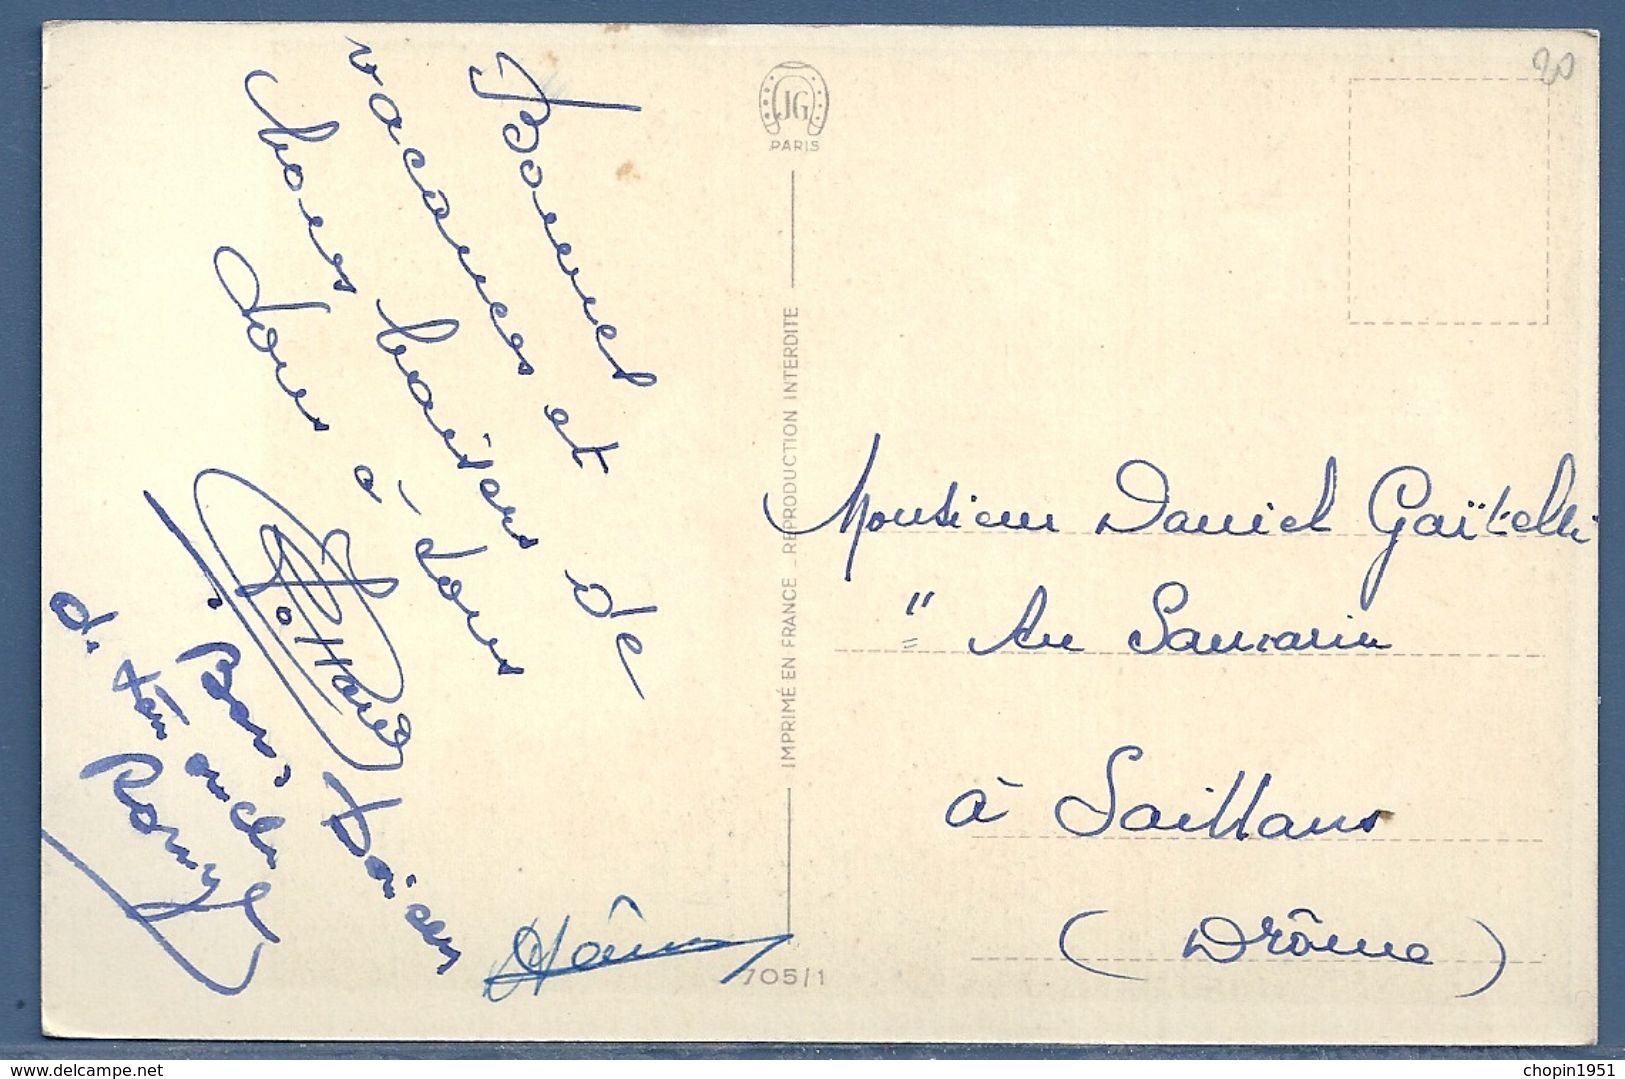 Bonnes
vacances et
bons baisers de
tous à tous
Bons Baisers
de ton oncle
JG
PARIS
IMPRIMÉ EN FRANCE _ REPRODUCTION INTERDITE
705/1
20
Monsieur Daniel Gaïtelli
" Au Sauzarin
à Saillans
(Drôme)
chopin1951